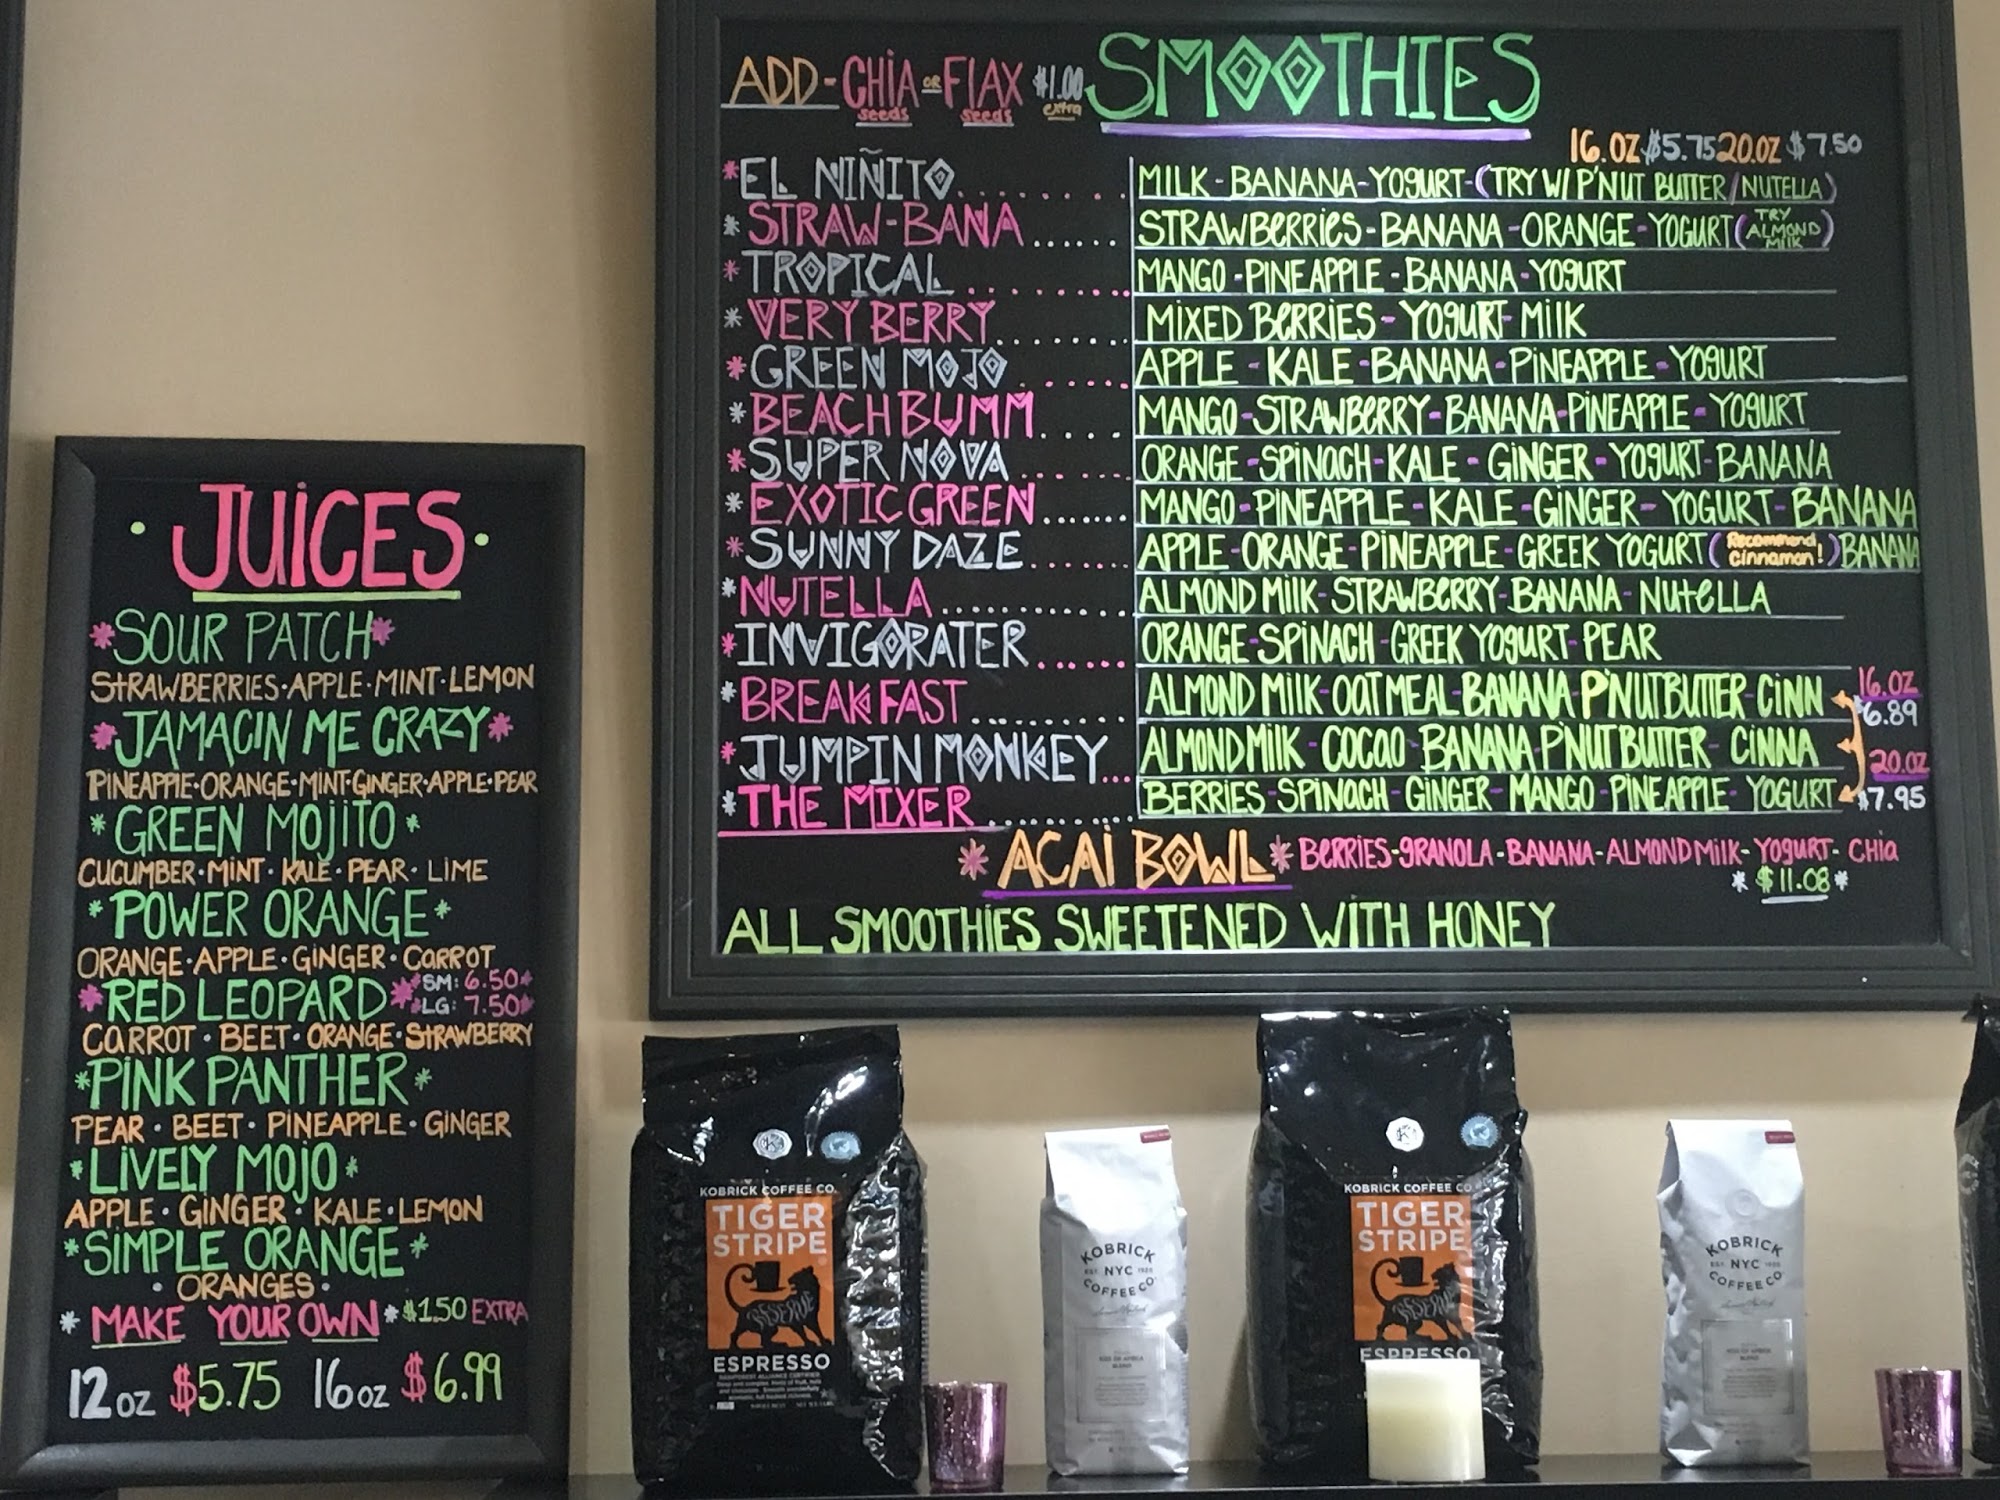 JUICES
*SOUR PATCH*
STRAWBERRIES·APPLE·MINT·LEMON
*JAMACIN ME CRAZY*
PINEAPPLE·ORANGE·MINT·GINGER·APPLE·PEAR
*GREEN MOJITO*
CUCUMBER·MINT·KALE·PEAR·LIME
*POWER ORANGE*
ORANGE·APPLE·GINGER·CARROT
*RED LEOPARD* SM: 6.50* LG: 7.50*
CARROT·BEET·ORANGE·STRAWBERRY
*PINK PANTHER*
PEAR·BEET·PINEAPPLE·GINGER
*LIVELY MOJO*
APPLE·GINGER·KALE·LEMON
*SIMPLE ORANGE*
·ORANGES·
*MAKE YOUR OWN* $1.50 EXTRA
12 OZ $5.75 16 OZ $6.99
ADD-CHIA seeds OR FLAX seeds $1.00 extra SMOOTHIES
16.OZ $5.75 20.OZ $7.50
*EL NIÑITO........ MILK-BANANA-YOGURT-(TRY W/ P'NUT BUTTER/NUTELLA)
*STRAW-BANA...... STRAWBERRIES-BANANA-ORANGE-YOGURT (TRY ALMOND MILK)
*TROPICAL......... MANGO-PINEAPPLE-BANANA-YOGURT
*VERY BERRY....... MIXED BERRIES-YOGURT-MILK
*GREEN MOJO...... APPLE-KALE-BANANA-PINEAPPLE-YOGURT
*BEACH BUMM.... MANGO-STRAWBERRY-BANANA-PINEAPPLE-YOGURT
*SUPER NOVA...... ORANGE-SPINACH-KALE-GINGER-YOGURT-BANANA
*EXOTIC GREEN...... MANGO-PINEAPPLE-KALE-GINGER-YOGURT-BANANA
*SUNNY DAZE...... APPLE-ORANGE-PINEAPPLE-GREEK YOGURT (Recommend Cinnamon!) BANANA
*NUTELLA........... ALMOND MILK-STRAWBERRY-BANANA-NUTELLA
*INVIGORATER...... ORANGE-SPINACH-GREEK YOGURT-PEAR
*BREAKFAST......... ALMOND MILK-OATMEAL-BANANA-P'NUTBUTTER-CINN 16.OZ $6.89
*JUMPIN MONKEY... ALMOND MILK-COCAO-BANANA P'NUT BUTTER-CINNA 20.OZ
*THE MIXER........ BERRIES-SPINACH-GINGER-MANGO-PINEAPPLE-YOGURT $7.95
*ACAI BOWL* BERRIES-GRANOLA-BANANA-ALMOND MILK-YOGURT-CHIA
*$11.08*
ALL SMOOTHIES SWEETENED WITH HONEY
KOBRICK COFFEE CO.
TIGER
STRIPE
RESERVE
ESPRESSO
RAINFOREST ALLIANCE CERTIFIED
KOBRICK
EST. NYC 1920
COFFEE CO.
KOBRICK COFFEE CO
TIGER
STRIPE
RESERVE
ESPRESSO
KOBRICK
EST. NYC 1920
COFFEE CO.